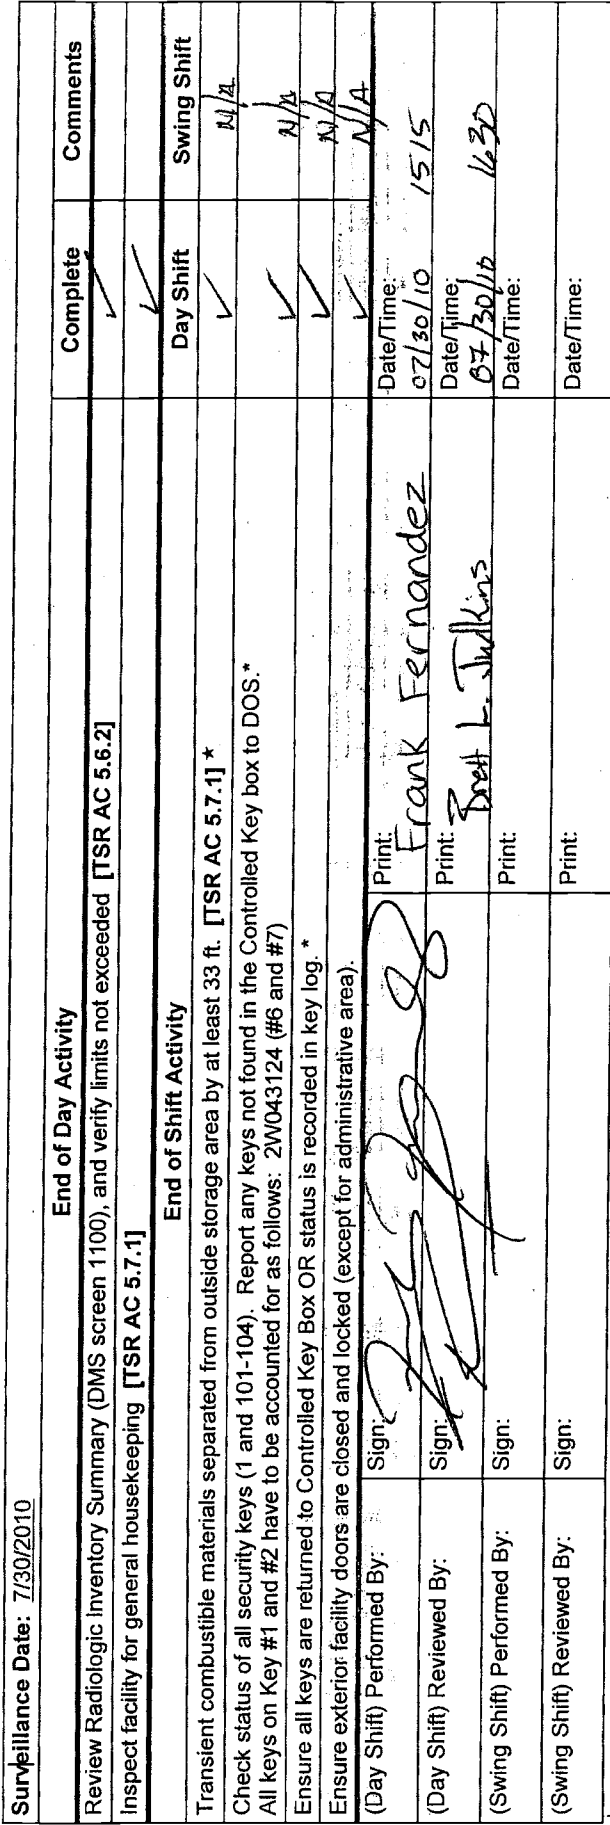 Surveillance Date: 7/30/2010
End of Day Activity Complete Comments
Review Radiologic Inventory Summary (DMS screen 1100), and verify limits not exceeded [TSR AC 5.6.2] ✓
Inspect facility for general housekeeping [TSR AC 5.7.1] ✓
End of Shift Activity Day Shift Swing Shift
Transient combustible materials separated from outside storage area by at least 33 ft. [TSR AC 5.7.1] * ✓ N/A
Check status of all security keys (1 and 101-104). Report any keys not found in the Controlled Key box to DOS.*
All keys on Key #1 and #2 have to be accounted for as follows: 2W043124 (#6 and #7) ✓ N/A
Ensure all keys are returned to Controlled Key Box OR status is recorded in key log. * ✓ N/A
Ensure exterior facility doors are closed and locked (except for administrative area). ✓ N/A
(Day Shift) Performed By: Sign: Print: Frank Fernandez Date/Time: 07/30/10 1515
(Day Shift) Reviewed By: Sign: Print: Brett L. Judkins Date/Time: 07/30/10 1630
(Swing Shift) Performed By: Sign: Print: Date/Time:
(Swing Shift) Reviewed By: Sign: Print: Date/Time: